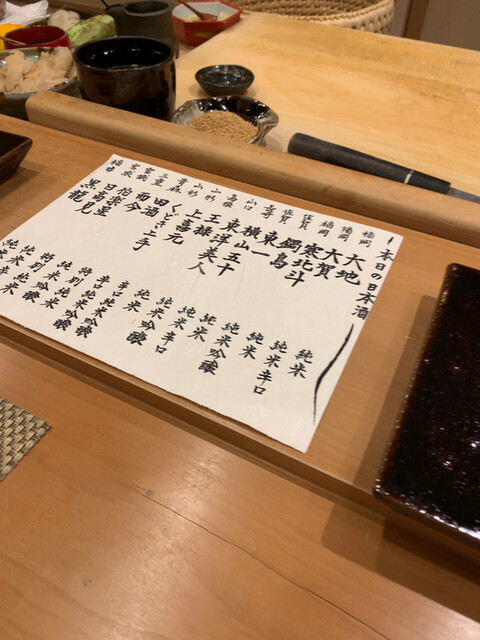 本日の日本酒
福岡 大地 純米
福岡 大賀 純米辛口
福岡 寒北斗 純米
佐賀 鍋島 純米吟醸
佐賀 東一 純米吟醸
長崎 横山五十
山口 東洋美人 純米辛口
王祿
山形 上喜元 純米吟醸
山形 くどき上手 純米
青森 田酒
三重 而今
宮城 伯楽星 特別純米
宮城 日高見
福井 黒龍 純米吟醸